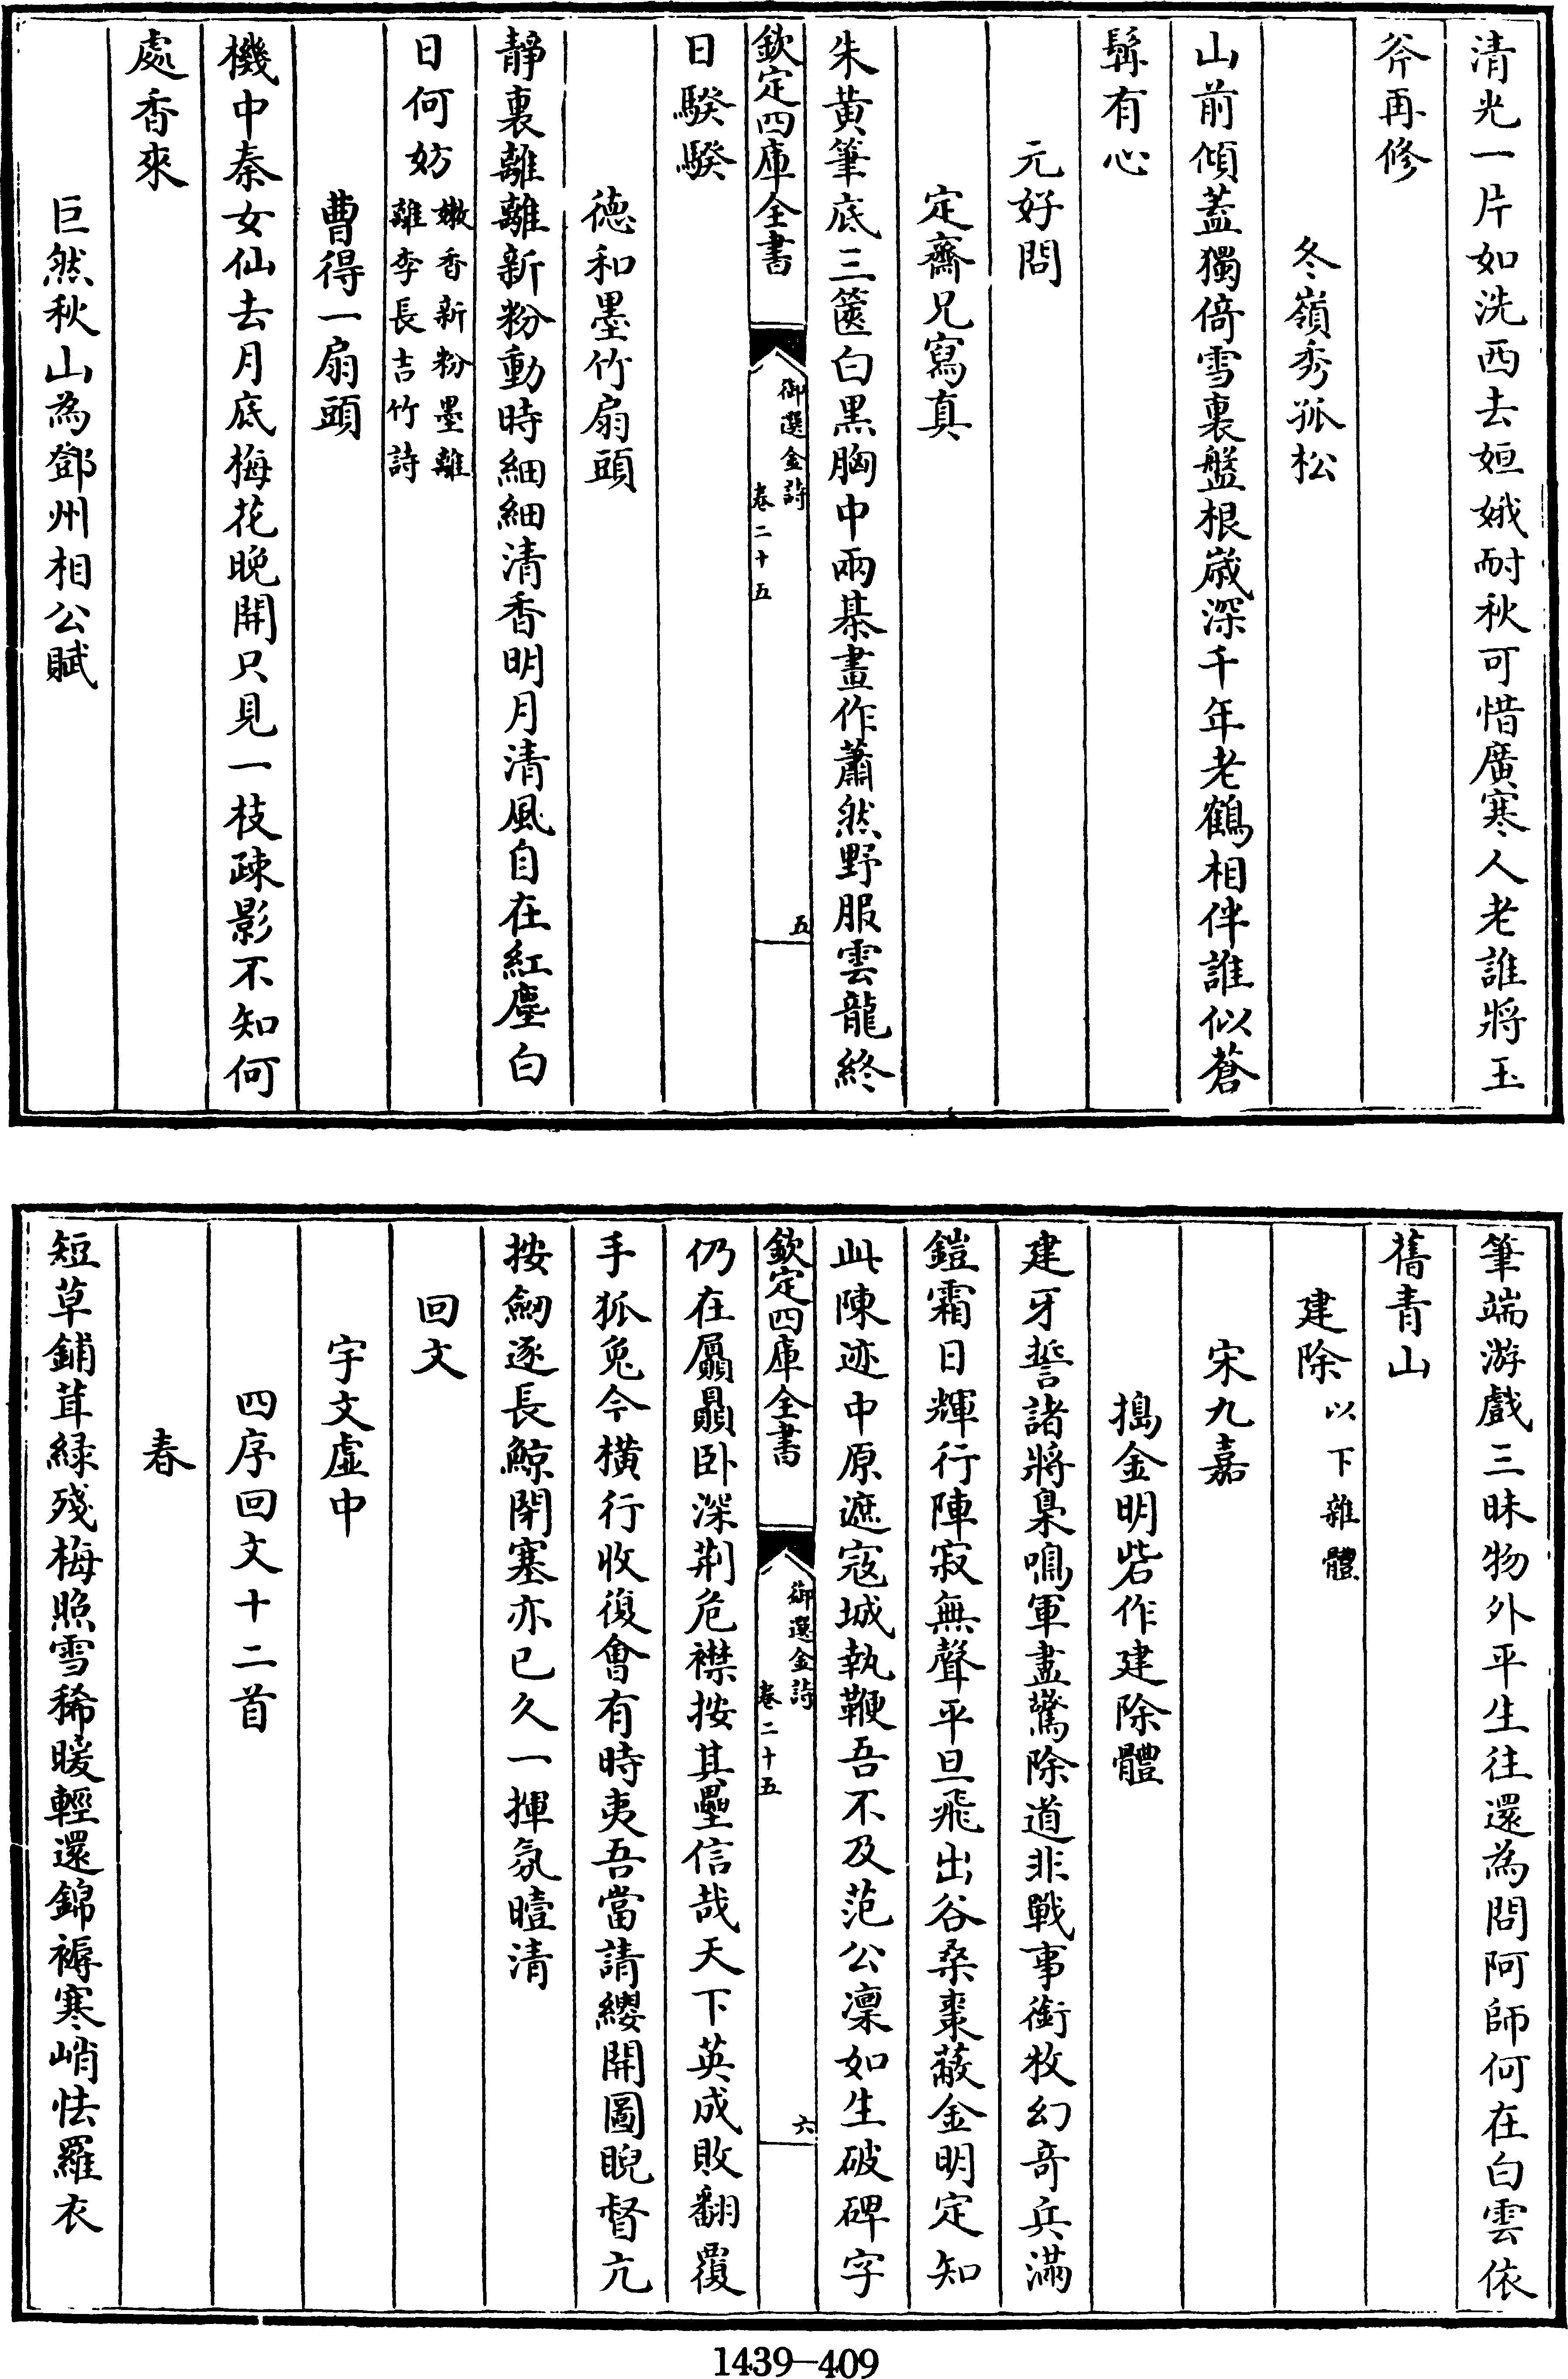 清光一片如洗西去姮娥耐秋可惜廣寒人老誰將玉
斧再修
冬嶺秀孤松
山前傾蓋獨倚雪裏盤根嵗深千年老鶴相伴誰似蒼
髯有心
元好問
定齋兄寫真
朱黃筆底三篋白黑胸中兩棊畫作蕭然野服雲龍終
欽定四庫全書
御選金詩
卷二十五
五
日騤騤
德和墨竹扇頭
靜裏離離新粉動時細細清香明月清風自在紅塵白
日何妨嫩香新粉墨離
離李長吉竹詩
曹得一扇頭
機中秦女仙去月底梅花晚開只見一枝疎影不知何
處香來
巨然秋山為鄧州相公賦
筆端游戲三昧物外平生往還為問阿師何在白雲依
舊青山
建除以下雜體
宋九嘉
搗金明砦作建除體
建牙誓諸將梟鳴軍盡驚除道非戰事銜枚幻奇兵滿
鎧霜日輝行陣寂無聲平旦飛出谷桑棗蔽金明定知
此陳迹中原遮寇城執鞭吾不及范公凜如生破碑字
欽定四庫全書
御選金詩
卷二十五
六
仍在屭贔卧深荆危襟按其壘信哉天下英成敗翻覆
手狐兔今橫行收復會有時夷吾當請纓開圖睨督亢
按劒逐長鯨閉塞亦已久一揮氛曀清
回文
宇文虛中
四序回文十二首
春
短草鋪茸緑殘梅照雪稀暖輕還錦褥寒峭怯羅衣
1439—409